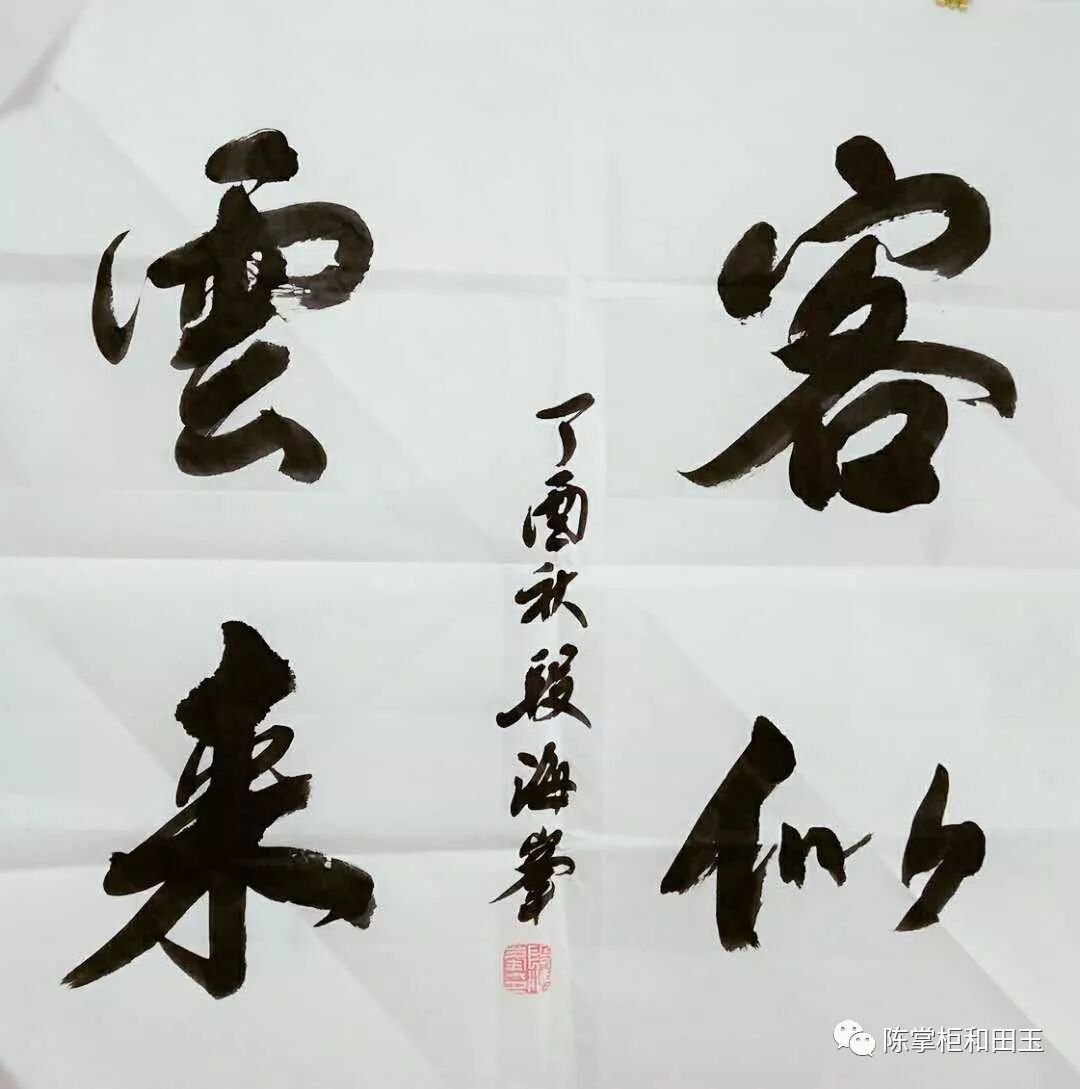 客似
雲来
丁酉秋段海峯
陈掌柜和田玉